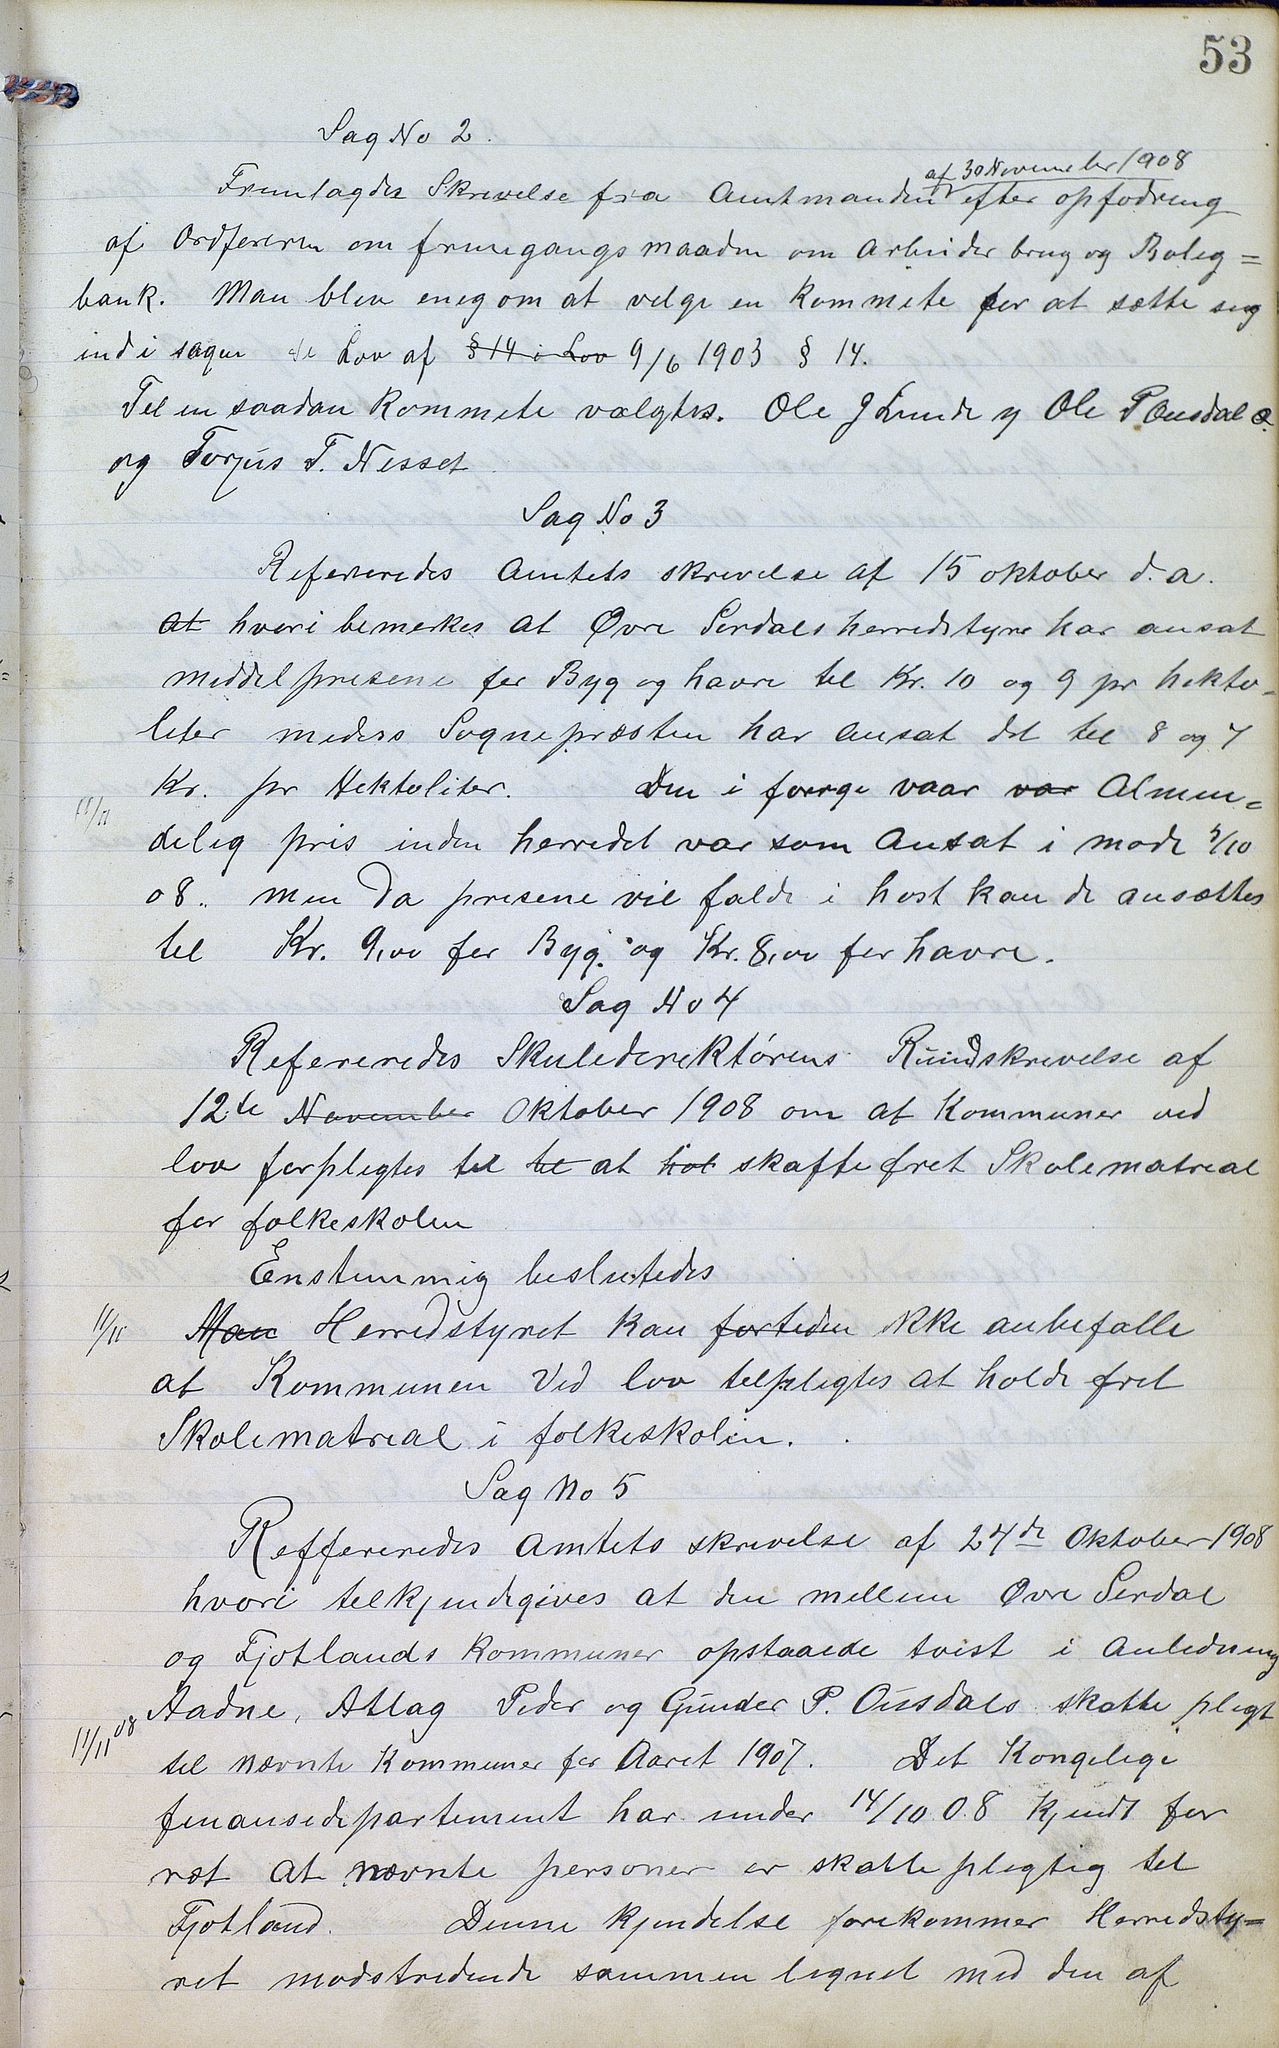 53
Sag No 2.
af 30 November 1908
Fremlagdes Skrivelse fra Amtmanden efter opfodring
af Ordføreren om fremgangsmaaden om Arbeider brug og Bolig=
bank. Man blev enig om at velge en Kommite for at sætte sig
ind i sagen Lov af § 14 i Lov 9/6 1903 § 14.
Til en saadan Kommite valgtes. Ole J Lunde og Ole P Ousdal
og Torjus T. Nesset
Sag No 3
Refereredes Amtets skrivelse af 15 oktober d.a.
at hvori bemerkes at Øvre Serdals herredstyre har ansat
middelprisene for Byg og havre til Kr. 10 og 9 pr hekto-
liter medens Sognepræsten har ansat det til 8 og 7
Kr. pr Hektoliter. Den i forrige vaar var Almin=
11/11
delig pris inden herredet var som ansat i møde 5/10
08. men da prisene vil falde i høst kan de ansættes
til Kr. 9,00 for Byg. og Kr. 8,00 for havre.
Sag No 4
Refereredes Skuledirektørens Rundskrivelse af
12te November Oktober 1908 om at Kommuner ved
lov forpligtes til til at hol skaffe frit Skolematrial
for folkeskolen
Enstemmig beslutedes
11/11 Man Herredstyret kan fortiden ikke anbefalle
at Kommunen Ved lov tilpligtes at holde frit
Skolematrial i folkeskolen.
Sag No 5
Reffereredes Amtets skrivelse af 24de Oktober 1908
hvori tilkjendegives at den mellem Øvre Serdal
og Fjotlands Kommuner opstaaede tvist i Anledning
Aadne, Atlag Peder og Gunder P. Ousdals skatte pligt
11/11 08
til nævnte Kommuner for Aaret 1907. Det Kongelige
finansdepartiment har under 14/10 08 kjendt for
ret at nævnte personer er skatte pligtig til
Fjotland. Denne kjendelse forekommer Herredsty=
ret modstridende sammenlignet med den af